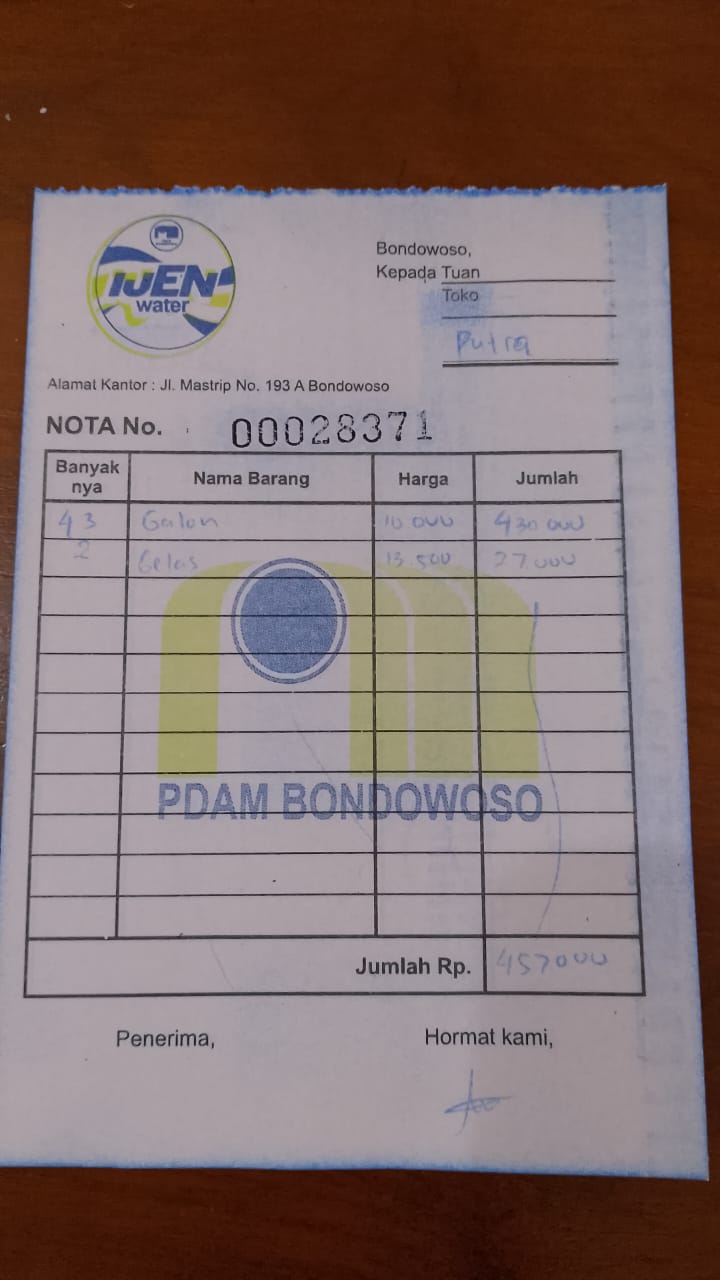 IJEN
water
Bondowoso,
Kepada Tuan
Toko
Putra
Alamat Kantor : Jl. Mastrip No. 193 A Bondowoso
NOTA No. 00028371
Banyak nya Nama Barang Harga Jumlah
43 Galon 10 000 430 000
2 Gelas 13.500 27.000
PDAM BONDOWOSO
Jumlah Rp. 457000
Penerima, Hormat kami,